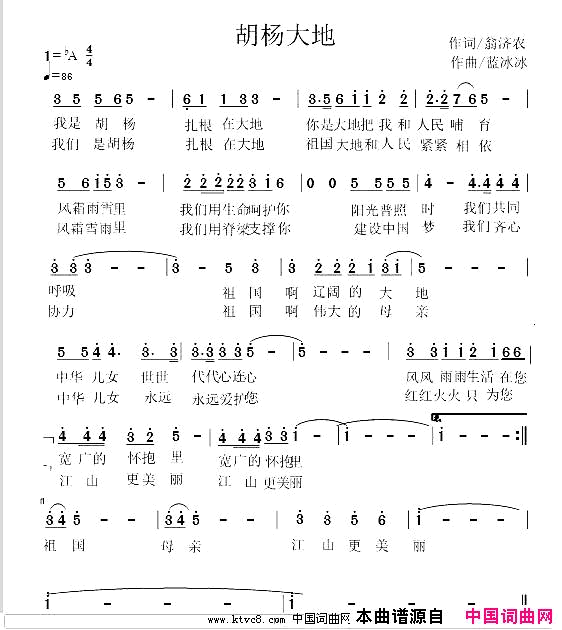 胡杨大地
1=♭A 4/4
♩=86
作词/翁济农
作曲/蓝冰冰
3 5 6 5 - | 6 1 1 3 3 - | 3·5 6 1 1 2 2 2·2 7 6 5 -
我是 胡 杨 扎根 在大地 你是大地把 我 和 人民 哺 育
我们 是胡杨 扎根 在大地 祖国大地和人民 紧紧 相 依
5 6 1 5 3 - | 2 2 2 2 2 3 2 - | 0 0 5 5 5 2 | 4 - 4·4 4 4
风霜雨雪里 我们用生命呵护你 阳光普照 时 我们共同
风霜雪雨里 我们用脊梁支撑你 建设中国 梦 我们齐心
3 3 - - | 5 - 3 3 | 3 2 2 2 1 3 1 | 5 - - -
呼吸 祖 国 啊 辽阔 的 大 地
协力 祖 国 啊 伟大 的 母 亲
5 5 4 4· 3·3 | 4 4 3 2 5 | 5 - - - | 5 5 1 1 2 1 6 6
中华 儿 女 世世 代代心连心 风风 雨雨生活 在您
中华 儿女 永远 永远爱护您 红红火火 只 为您
4 4 4 4 3 2 5 - | 4 4 4 4 3 3 1 | 1 - - - | 1 - - :||
宽 广的 怀抱 里 宽广的怀抱里
江 山 更美 丽 江山 更美丽
3 4 5 - - | 3 4 5 - - | 3 3 5 6 | 1 - - -
祖 国 母 亲 江 山 更 美 丽
1 - - - | 1 - - - ‖
www.ktvc8.com 中国词曲网 本曲谱源自 中国词曲网